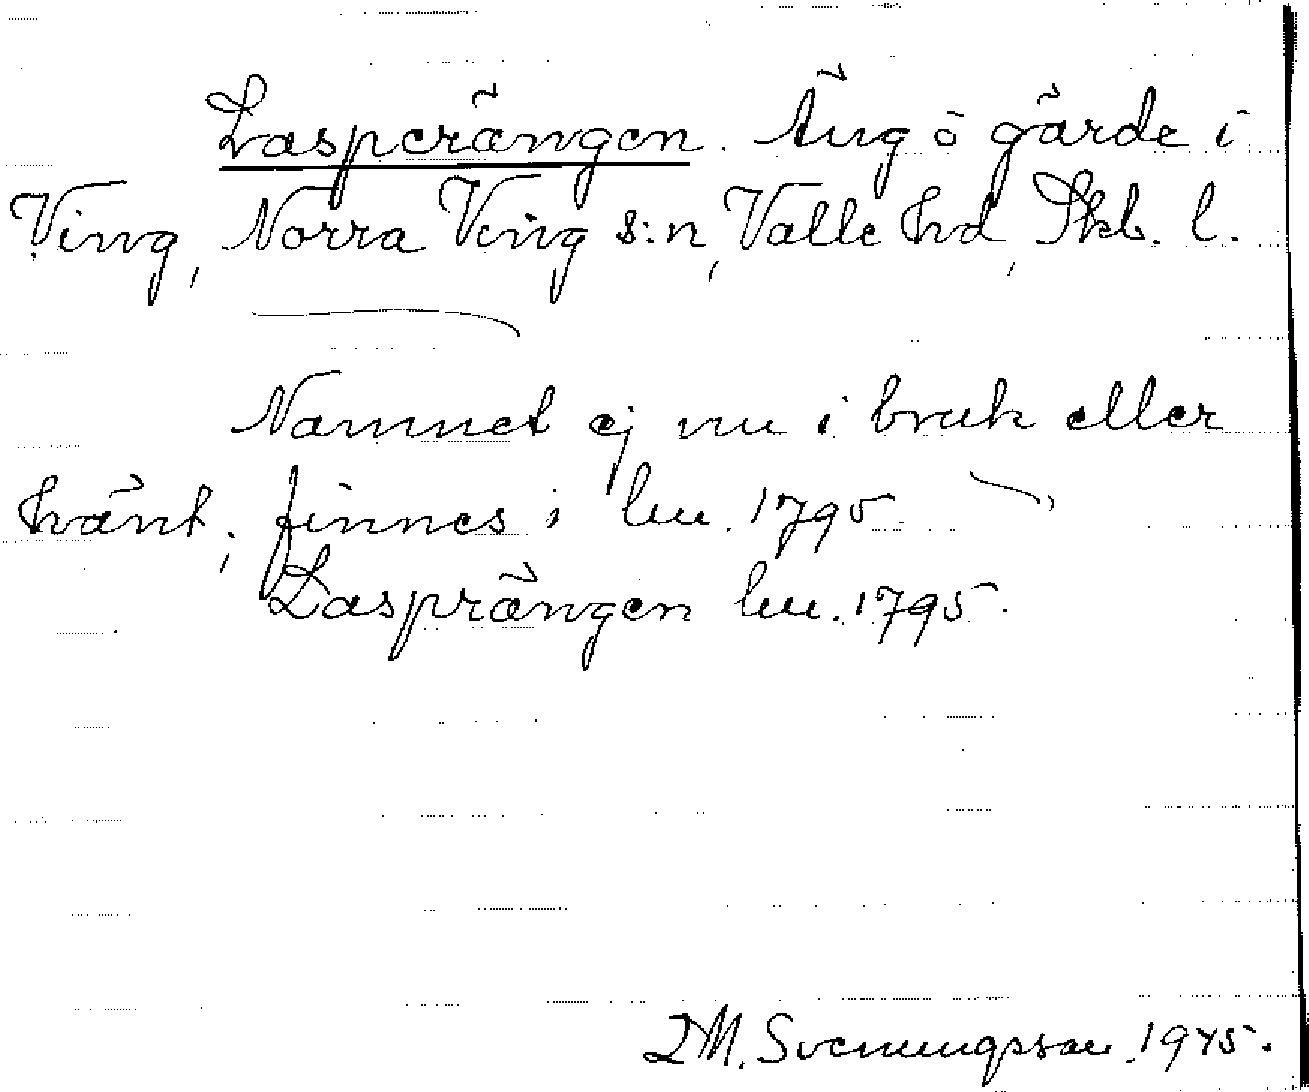 Lasperängen. Äng o gärde i
Ving, Norra Ving s:n, Valle hd, Skb. l.
Namnet ej nu i bruk eller
känt; finnes i lm. 1795
Lasprängen lm. 1795.
M. Svenungsson 1945.